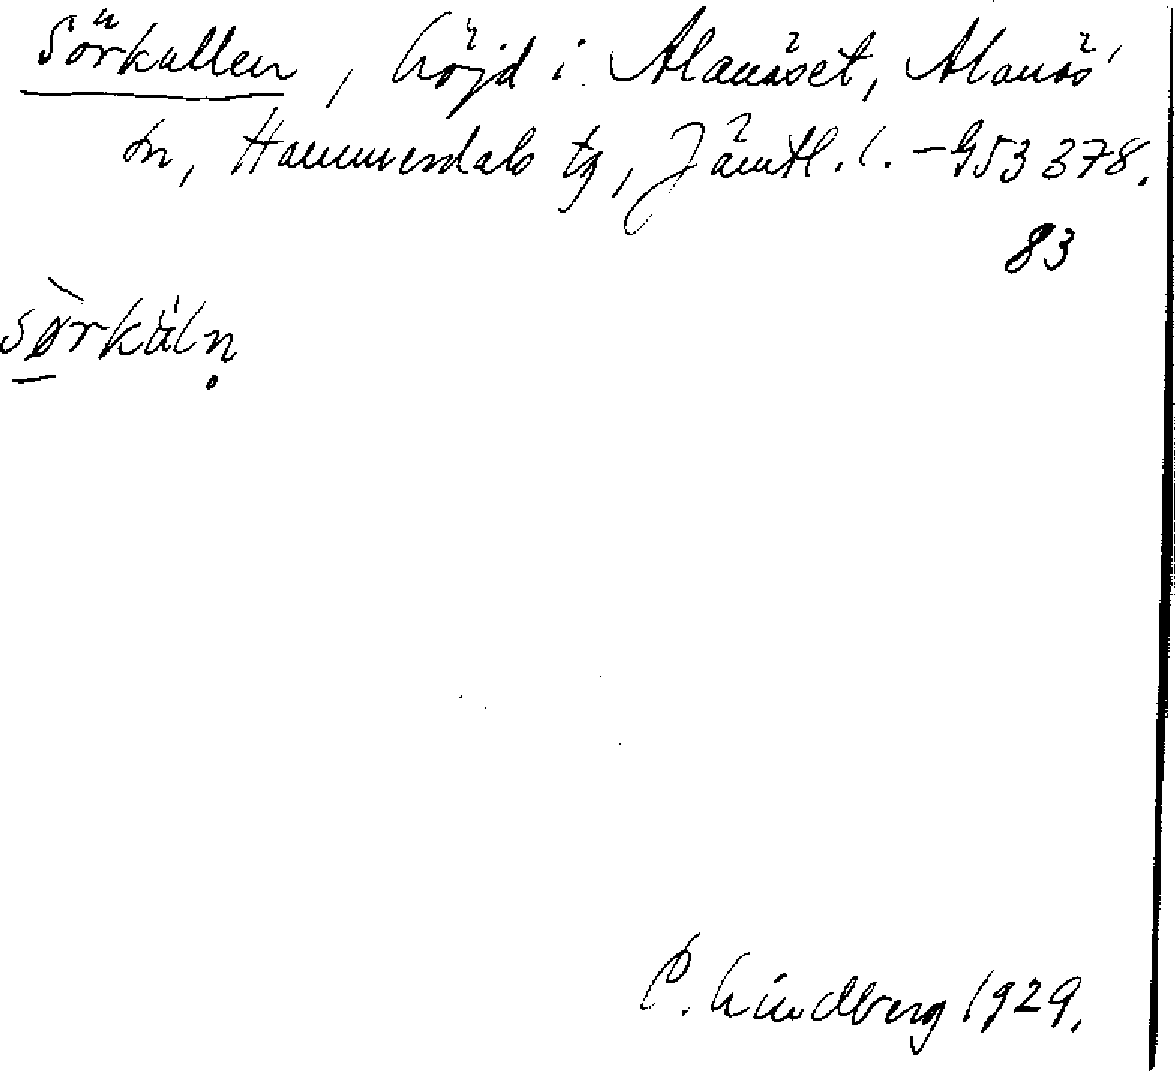 Sörkullen, höjd i Alanäset, Alanäs
sn, Hammerdals tg, Jämtl. l. - G53 378.
83
sørkäln
P. Lindberg 1929.